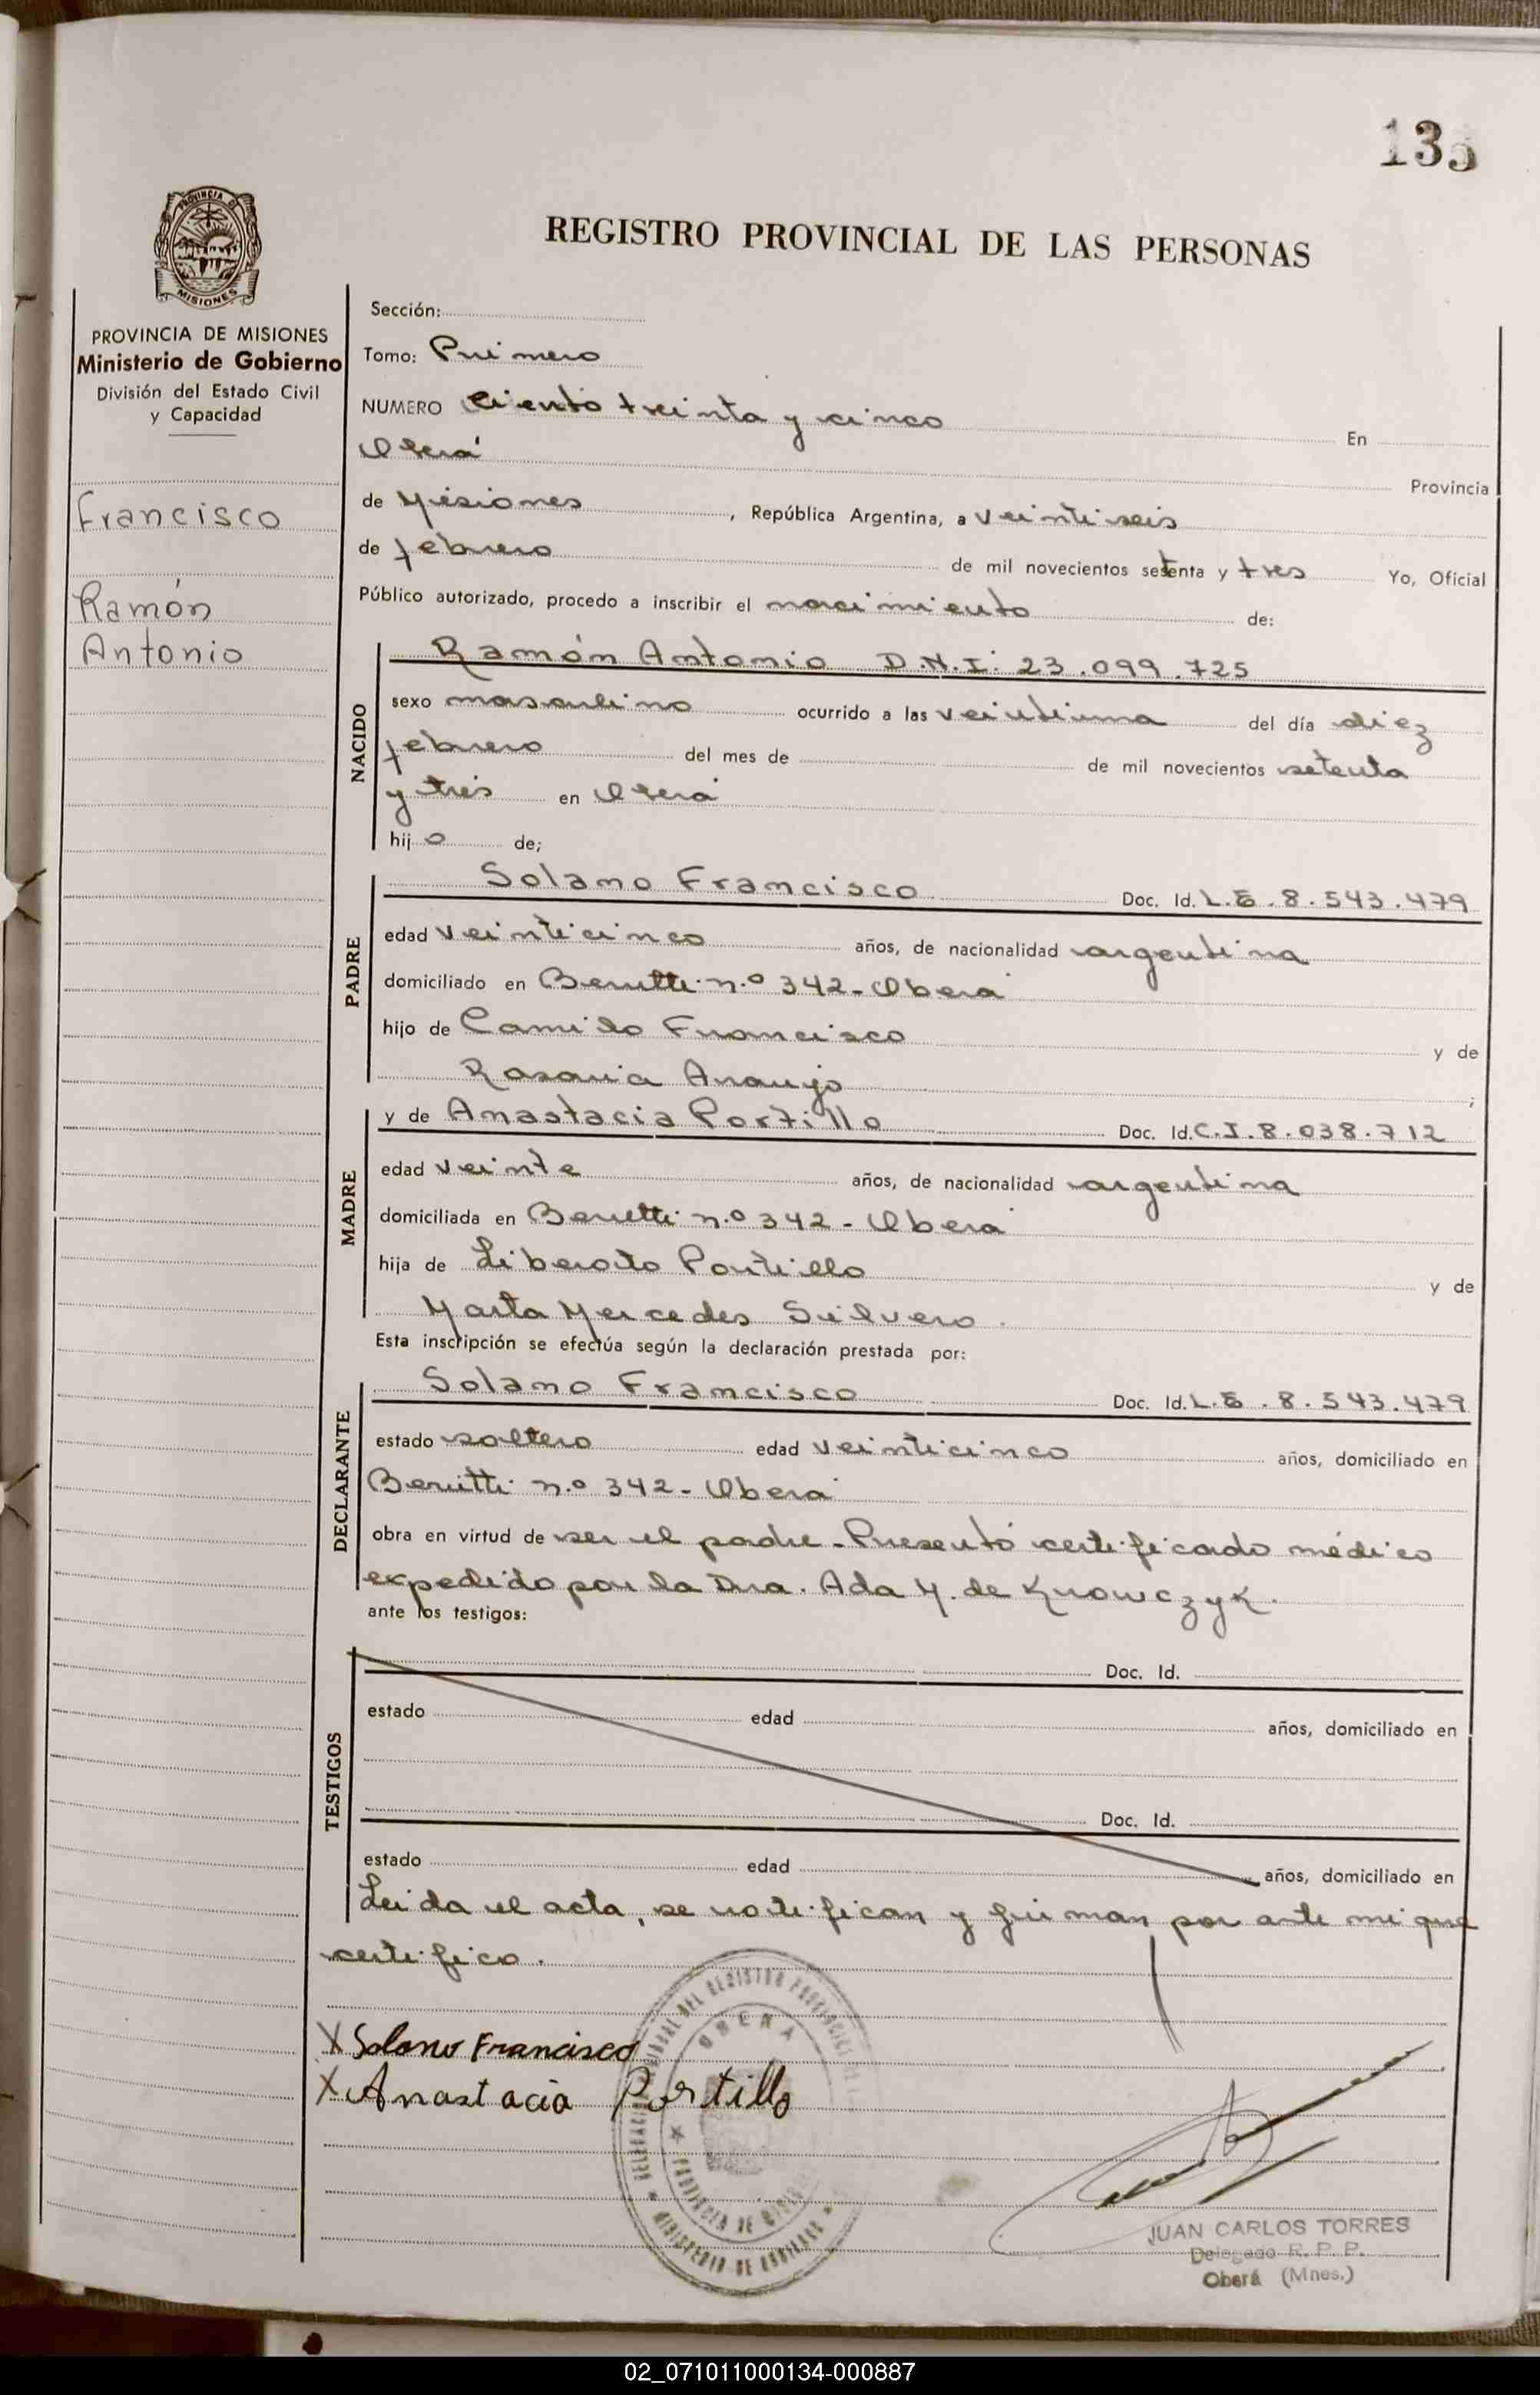 135
REGISTRO PROVINCIAL DE LAS PERSONAS
PROVINCIA DE
MISIONES
PROVINCIA DE MISIONES
Ministerio de Gobierno
División del Estado Civil
y Capacidad
Francisco
Ramón
Antonio
Sección:
Tomo: Primero
NUMERO Ciento treinta y cinco En
Oberá Provincia
de Misiones, República Argentina, a veintiseis
de febrero de mil novecientos setenta y tres Yo, Oficial
Público autorizado, procedo a inscribir el nacimiento de:
NACIDO
Ramón Antonio D.N.I. 23.099.725
sexo masculino ocurrido a las veintiuna del día diez
febrero del mes de de mil novecientos setenta
y tres en Oberá
hijo de;
PADRE
Solano Francisco Doc. Id. L.E. 8.543.479
edad veinticinco años, de nacionalidad argentina
domiciliado en Berutti n.º 342 - Oberá
hijo de Camilo Francisco y de
Rosaria Araujo ;
MADRE
y de Anastacia Portillo Doc. Id. C.I. 8.038.712
edad veinte años, de nacionalidad argentina
domiciliada en Berutti n.º 342 - Oberá
hija de Liberato Portillo y de
Marta Mercedes Silvero.
Esta inscripción se efectúa según la declaración prestada por:
DECLARANTE
Solano Francisco Doc. Id. L.E. 8.543.479
estado soltero edad veinticinco años, domiciliado en
Berutti n.º 342 - Oberá
obra en virtud de ser el padre - Presentó certificado médico
expedido por la Dra. Ada M. de Krowczyk.
ante los testigos:
TESTIGOS
Doc. Id.
estado edad años, domiciliado en
Doc. Id.
estado edad años, domiciliado en
Leida el acta, se ratifican y firman por ante mi que
certifico.
X Solano Francisco
X Anastacia Portillo
OBERA
PROVINCIA DE
MINISTERIO DE
JUAN CARLOS TORRES
Delegado R. P. P.
Oberá (Mnes.)
02_071011000134-000887